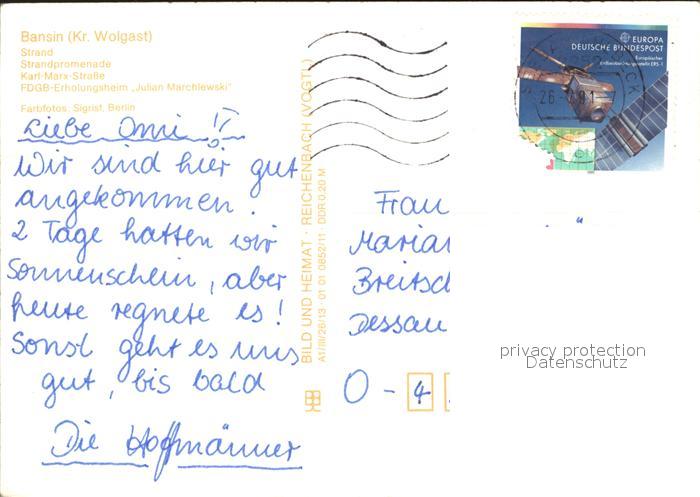 Bansin (Kr. Wolgast)
Strand
Strandpromenade
Karl-Marx-Straße
FDGB-Erholungsheim „Julian Marchlewski"
Farbfotos: Sigrist, Berlin
Liebe Omi!
Wir sind hier gut
angekommen.
2 Tage hatten wir
Sonnenschein, aber
heute regnete es!
Sonst geht es uns
gut, bis bald
Die Hoffmänner
BILD UND HEIMAT · REICHENBACH (VOGTL)
A1/III/26/13 · 01 01 0852/11 · DDR 0.20 M
EUROPA
DEUTSCHE BUNDESPOST
Europäischer
ERS-1
Frau
Marian
Breitsc
Dessau
O - 4
privacy protection
Datenschutz